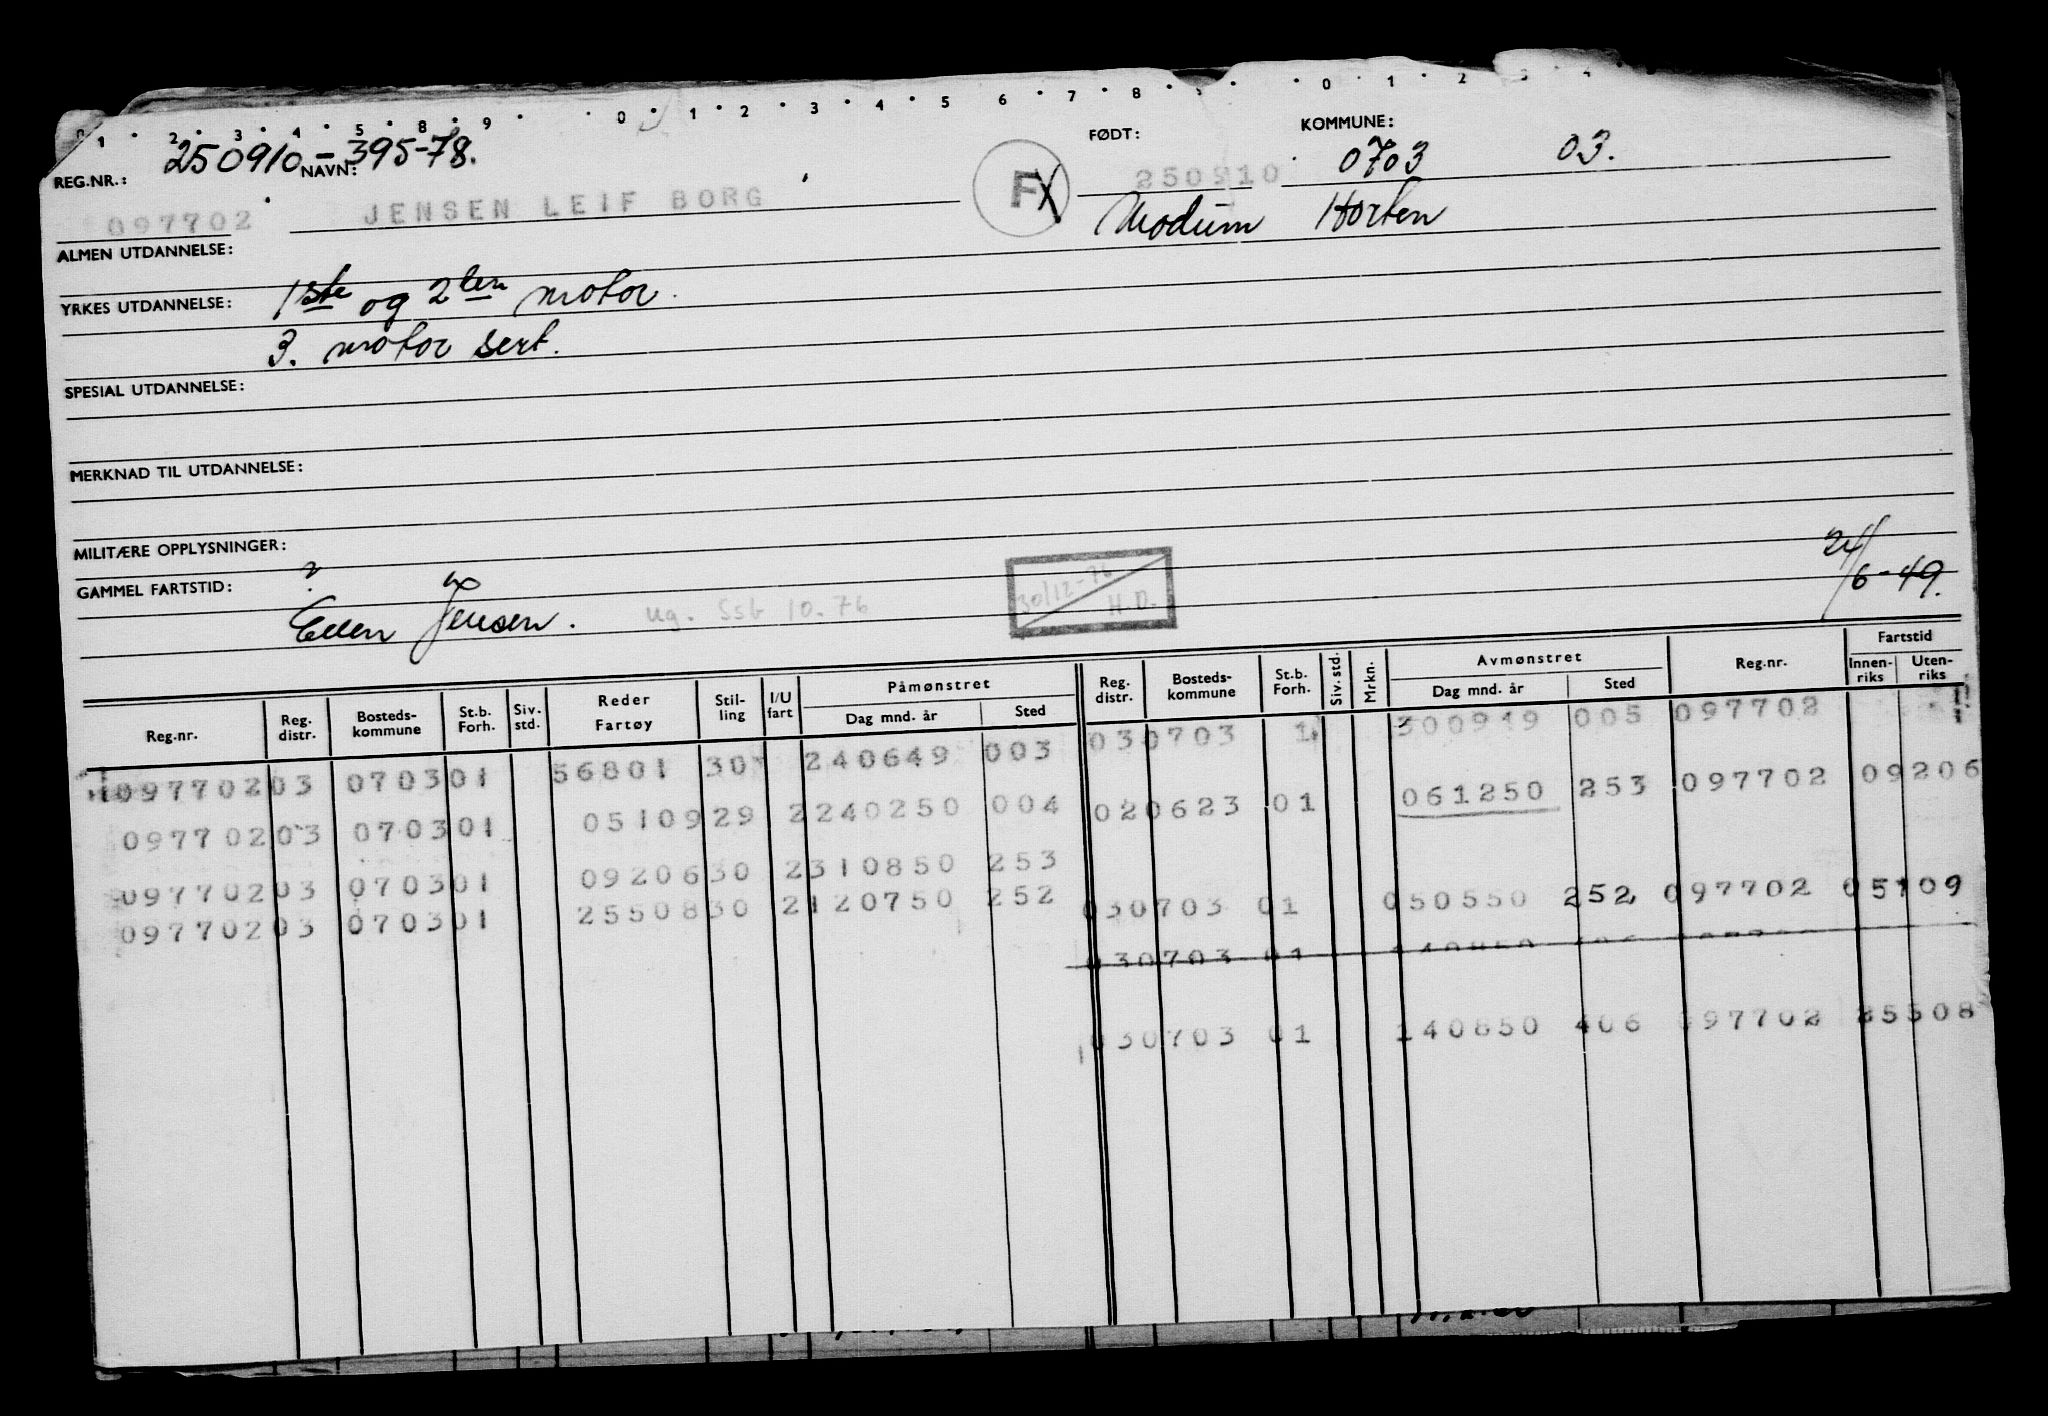 0 1 . 2 . 3 . 4 . 5 . 8 . 9 . 0 . 1 . 2 . 3 . 4 . 5 6 . 7 . 8 . . 0 . 1 . 2
REG.NR.: 250910-395-78. NAVN: FØDT: KOMMUNE: 0703 03.
097702 JENSEN LEIF BORG FX 250910
Modum Horten
ALMEN UTDANNELSE:
YRKES UTDANNELSE: 1ste og 2den motor.
3. motor sert.
SPESIAL UTDANNELSE:
MERKNAD TIL UTDANNELSE:
MILITÆRE OPPLYSNINGER:
GAMMEL FARTSTID: ? 30/12-76 H.D. 24/6-49.
Ellen Jensen. ug. Ssb 10.76
Reg.nr. Reg. distr. Bosteds-kommune St.b. Forh. Siv. std. Reder Fartøy Stil-ling I/U fart Påmønstret Dag mnd. år Sted Reg. distr. Bosteds-kommune St.b. Forh. Siv. std. Mrkn. Avmønstret Dag mnd. år Sted Reg.nr. Fartstid Innen-riks Uten-riks
097702 03 0703 01 56801 30 240649 003 03 0703 1 300949 005 097702
097702 03 0703 01 05109 29 2 240250 004 02 0623 01 061250 253 097702 09206
097702 03 0703 01 09206 30 2 310850 253
097702 03 0703 01 25508 30 2 120750 252 030703 01 050550 252 097702 05109
030703 01 140850 406
030703 01 140850 406 097702 25508